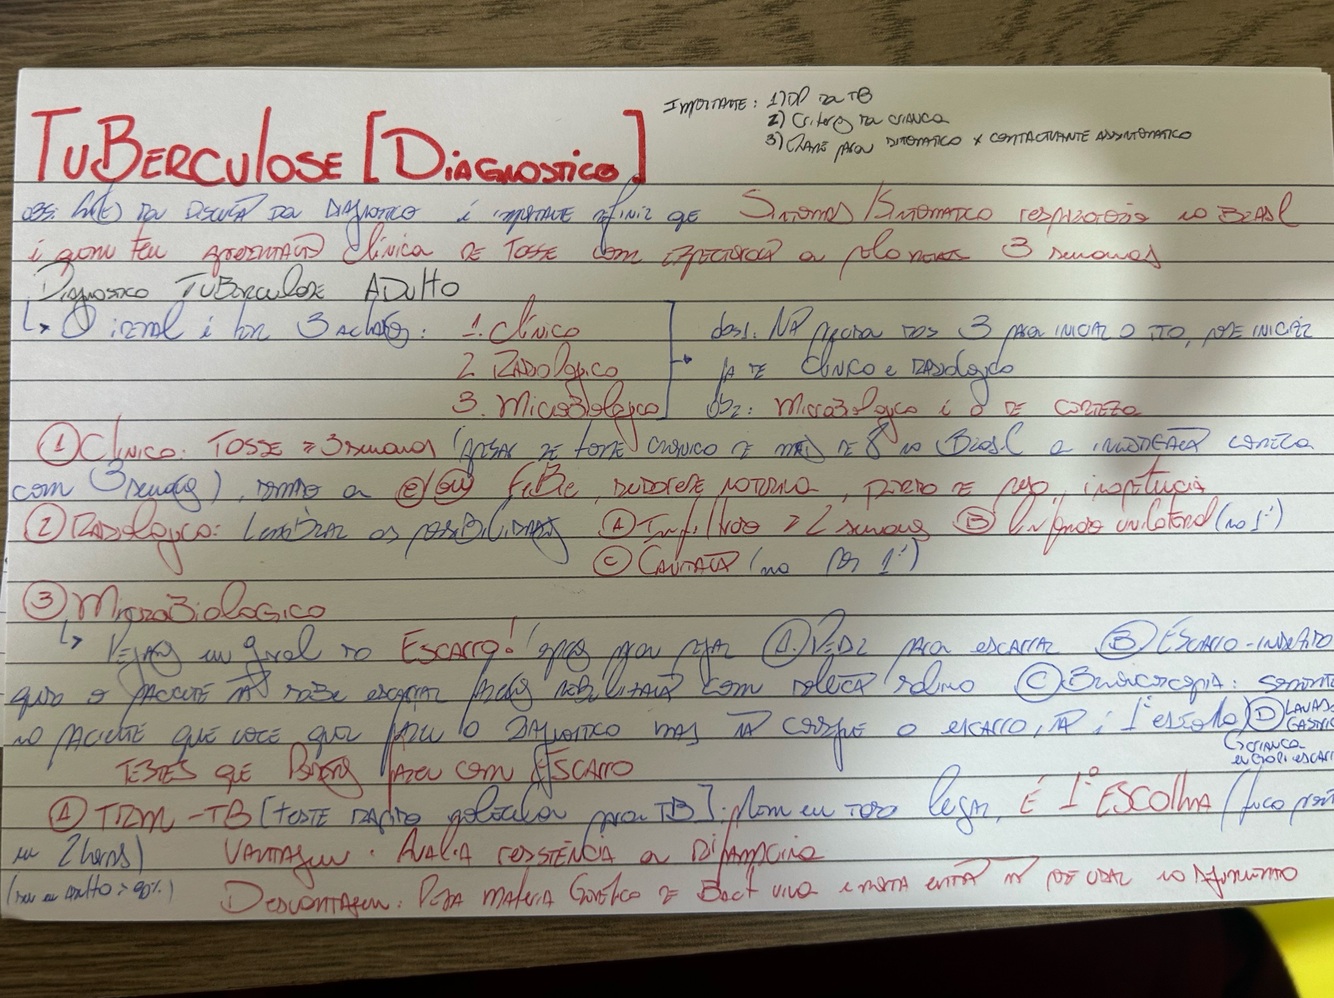 TUBERCULOSE [DIAGNOSTICO]
IMPORTANTE: 1) DD DA TB
2) Criterios na CRIANCA
3) CHAVE PARA SITOMATICO X CONTACTUANTE ASSINTOMATICO
OBS: DA DISCUSSÃO DO DIAGNOSTICO é importante definir que Sintomas/Sintomatico respiratorio no BRASIL
é quem teu apresentação clínica DE TOSSE com expectoração a pelo menos 3 semanas
Diagnostico TUBERCULOSE ADULTO
↳ O ideal é ter 3 achados: 1. Clínico
2. RADIOLOGICO
3. MICROBIOLOGICO
obs1: NÃO precisa DOS 3 para iniciar o TTO, PODE INICIAR
já TE CLINICO e RADIOLOGICO
obs2: MICROBIOLOGICO é o DE CERTEZA
① CLÍNICO: TOSSE ≥ 3 semanas (apesar DE TOSSE CRONICA DE mais DE 8 no BRASIL a investigação começa
com 3 semanas), somado a e/ou FEBRE, SUDORESE NOTURNA, PERDA DE PESO, inapetencia
② RADIOLOGICO: LEMBRAR as possibilidades Ⓐ Infiltrado > 2 semanas Ⓑ linfonodo unilateral (no 1ª)
Ⓒ CAVITAÇÃO (no Pós 1ª)
③ MICROBIOLOGICO
↳ Pegamos em geral no ESCARRO! opções para pegar Ⓐ PEDIR para escarrar Ⓑ ESCARRO-INDUZIDO
quando o paciente não sabe escarrar fazemos nebulização com solução salina Ⓒ Broncoscopia: somente
no PACIENTE QUE VOCE quer fazer o DIAGNOSTICO mas não consegue o escarro, não é 1ª escolha Ⓓ LAVADO GASTRICO
↳ CRIANCA
TESTES QUE Podemos fazer com ESCARRO
Ⓐ TRM-TB [TESTE RAPIDO molecular para TB]: tem em todo lugar, É 1ª ESCOLHA (fica pronto
em 2 horas) VANTAGEM: AVALIA RESISTÊNCIA a RIFAMPICINA
(sen em adulto > 90%) Desvantagem: PEGA MATERIAL GENÉTICO DE Bact viva e morta então não PODE USAR no seguimento